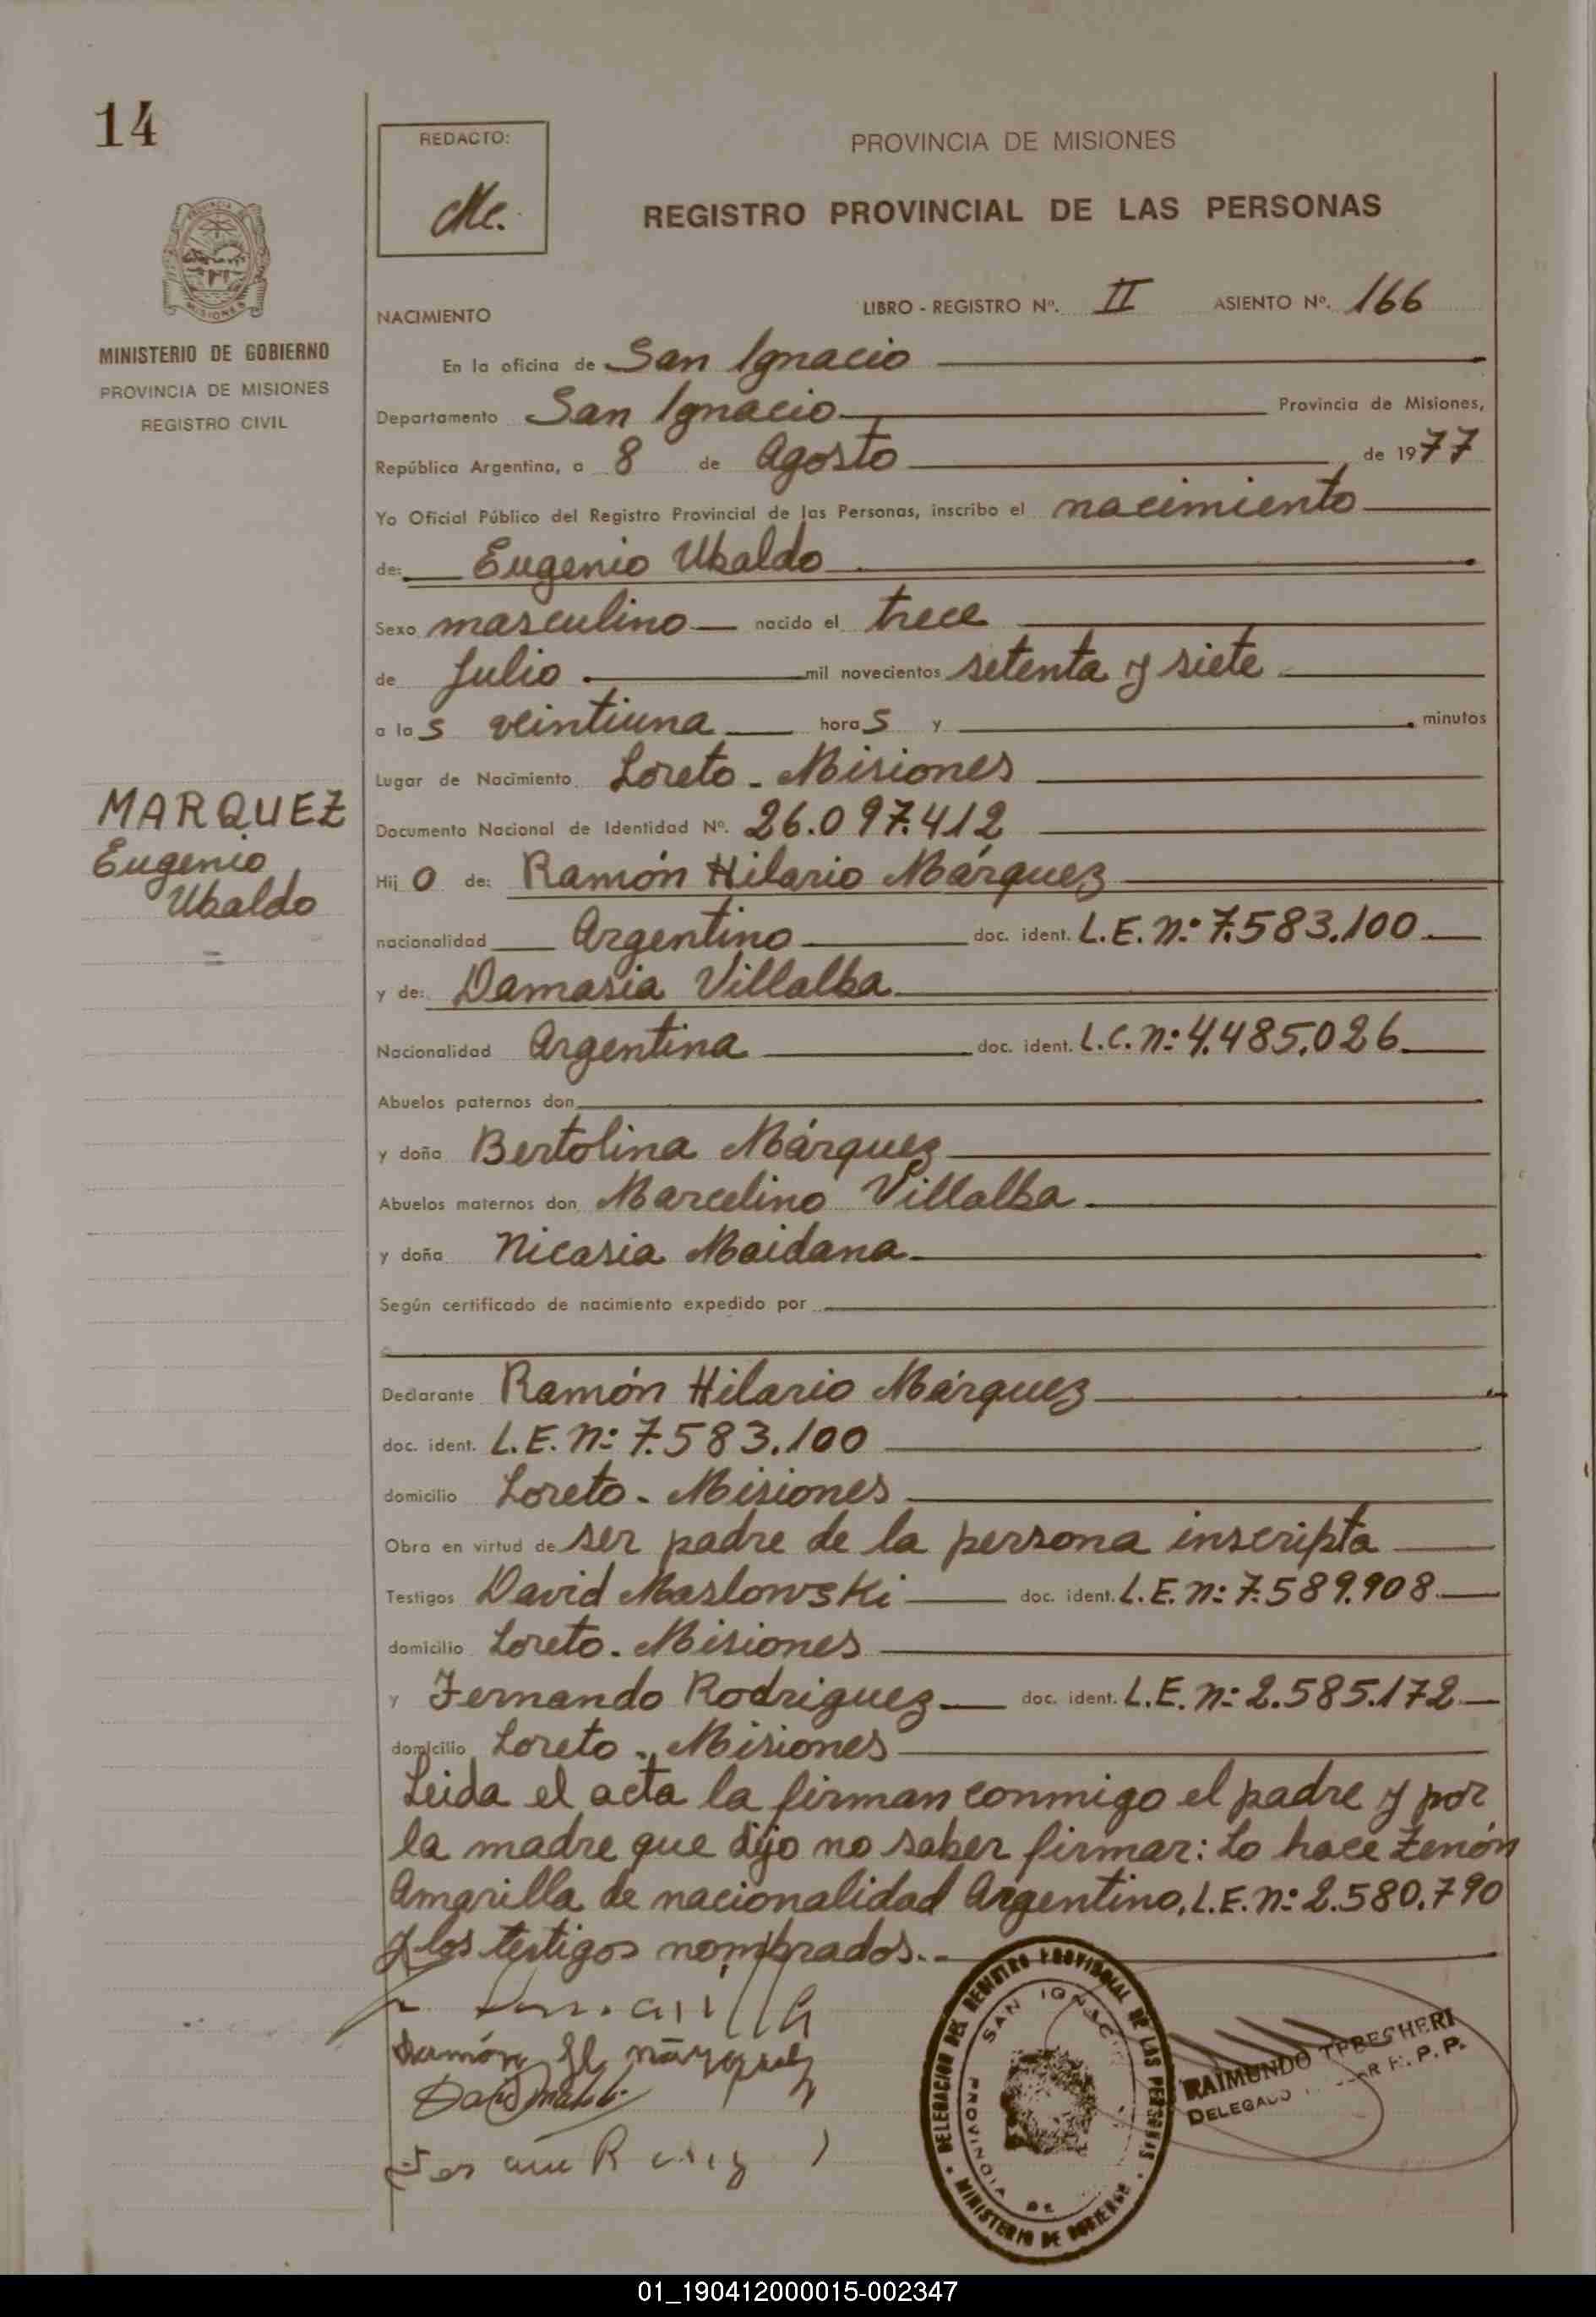 14
REDACTO:
Mc.
PROVINCIA DE MISIONES
REGISTRO PROVINCIAL DE LAS PERSONAS
MINISTERIO DE GOBIERNO
PROVINCIA DE MISIONES
REGISTRO CIVIL
NACIMIENTO LIBRO - REGISTRO Nº. II ASIENTO Nº. 166
En la oficina de San Ignacio
Departamento San Ignacio Provincia de Misiones,
República Argentina, a 8 de Agosto de 1977
Yo Oficial Público del Registro Provincial de las Personas, inscribo el nacimiento
de: Eugenio Ubaldo
Sexo masculino nacido el trece
de Julio mil novecientos setenta y siete
a las veintiuna horas y minutos
Lugar de Nacimiento Loreto - Misiones
MARQUEZ
Eugenio
Ubaldo
Documento Nacional de Identidad Nº. 26.097.412
Hijo de: Ramón Hilario Márquez
nacionalidad Argentino doc. ident. L.E. Nº: 7.583.100
y de: Damasia Villalba
Nacionalidad Argentina doc. ident. L.C. Nº: 4.485.026
Abuelos paternos don
y doña Bertolina Márquez
Abuelos maternos don Marcelino Villalba
y doña Nicasia Maidana
Según certificado de nacimiento expedido por
Declarante Ramón Hilario Márquez
doc. ident. L.E. Nº: 7.583.100
domicilio Loreto - Misiones
Obra en virtud de ser padre de la persona inscripta
Testigos David Maslowski doc. ident. L.E. Nº: 7.589.908
domicilio Loreto - Misiones
y Fernando Rodriguez doc. ident. L.E. Nº: 2.585.172
domicilio Loreto - Misiones
Leida el acta la firman conmigo el padre y por
la madre que dijo no saber firmar: Lo hace Zenón
Amarilla de nacionalidad Argentino, L.E. Nº: 2.580.790
y los testigos nombrados.
Ramón H. márquez
DELEGACION DEL REGISTRO PROVINCIAL DE LAS PERSONAS
SAN IGNACIO
PROVINCIA DE
MINISTERIO DE GOBIERNO
RAIMUNDO
DELEGADO R. P. P.
01_190412000015-002347